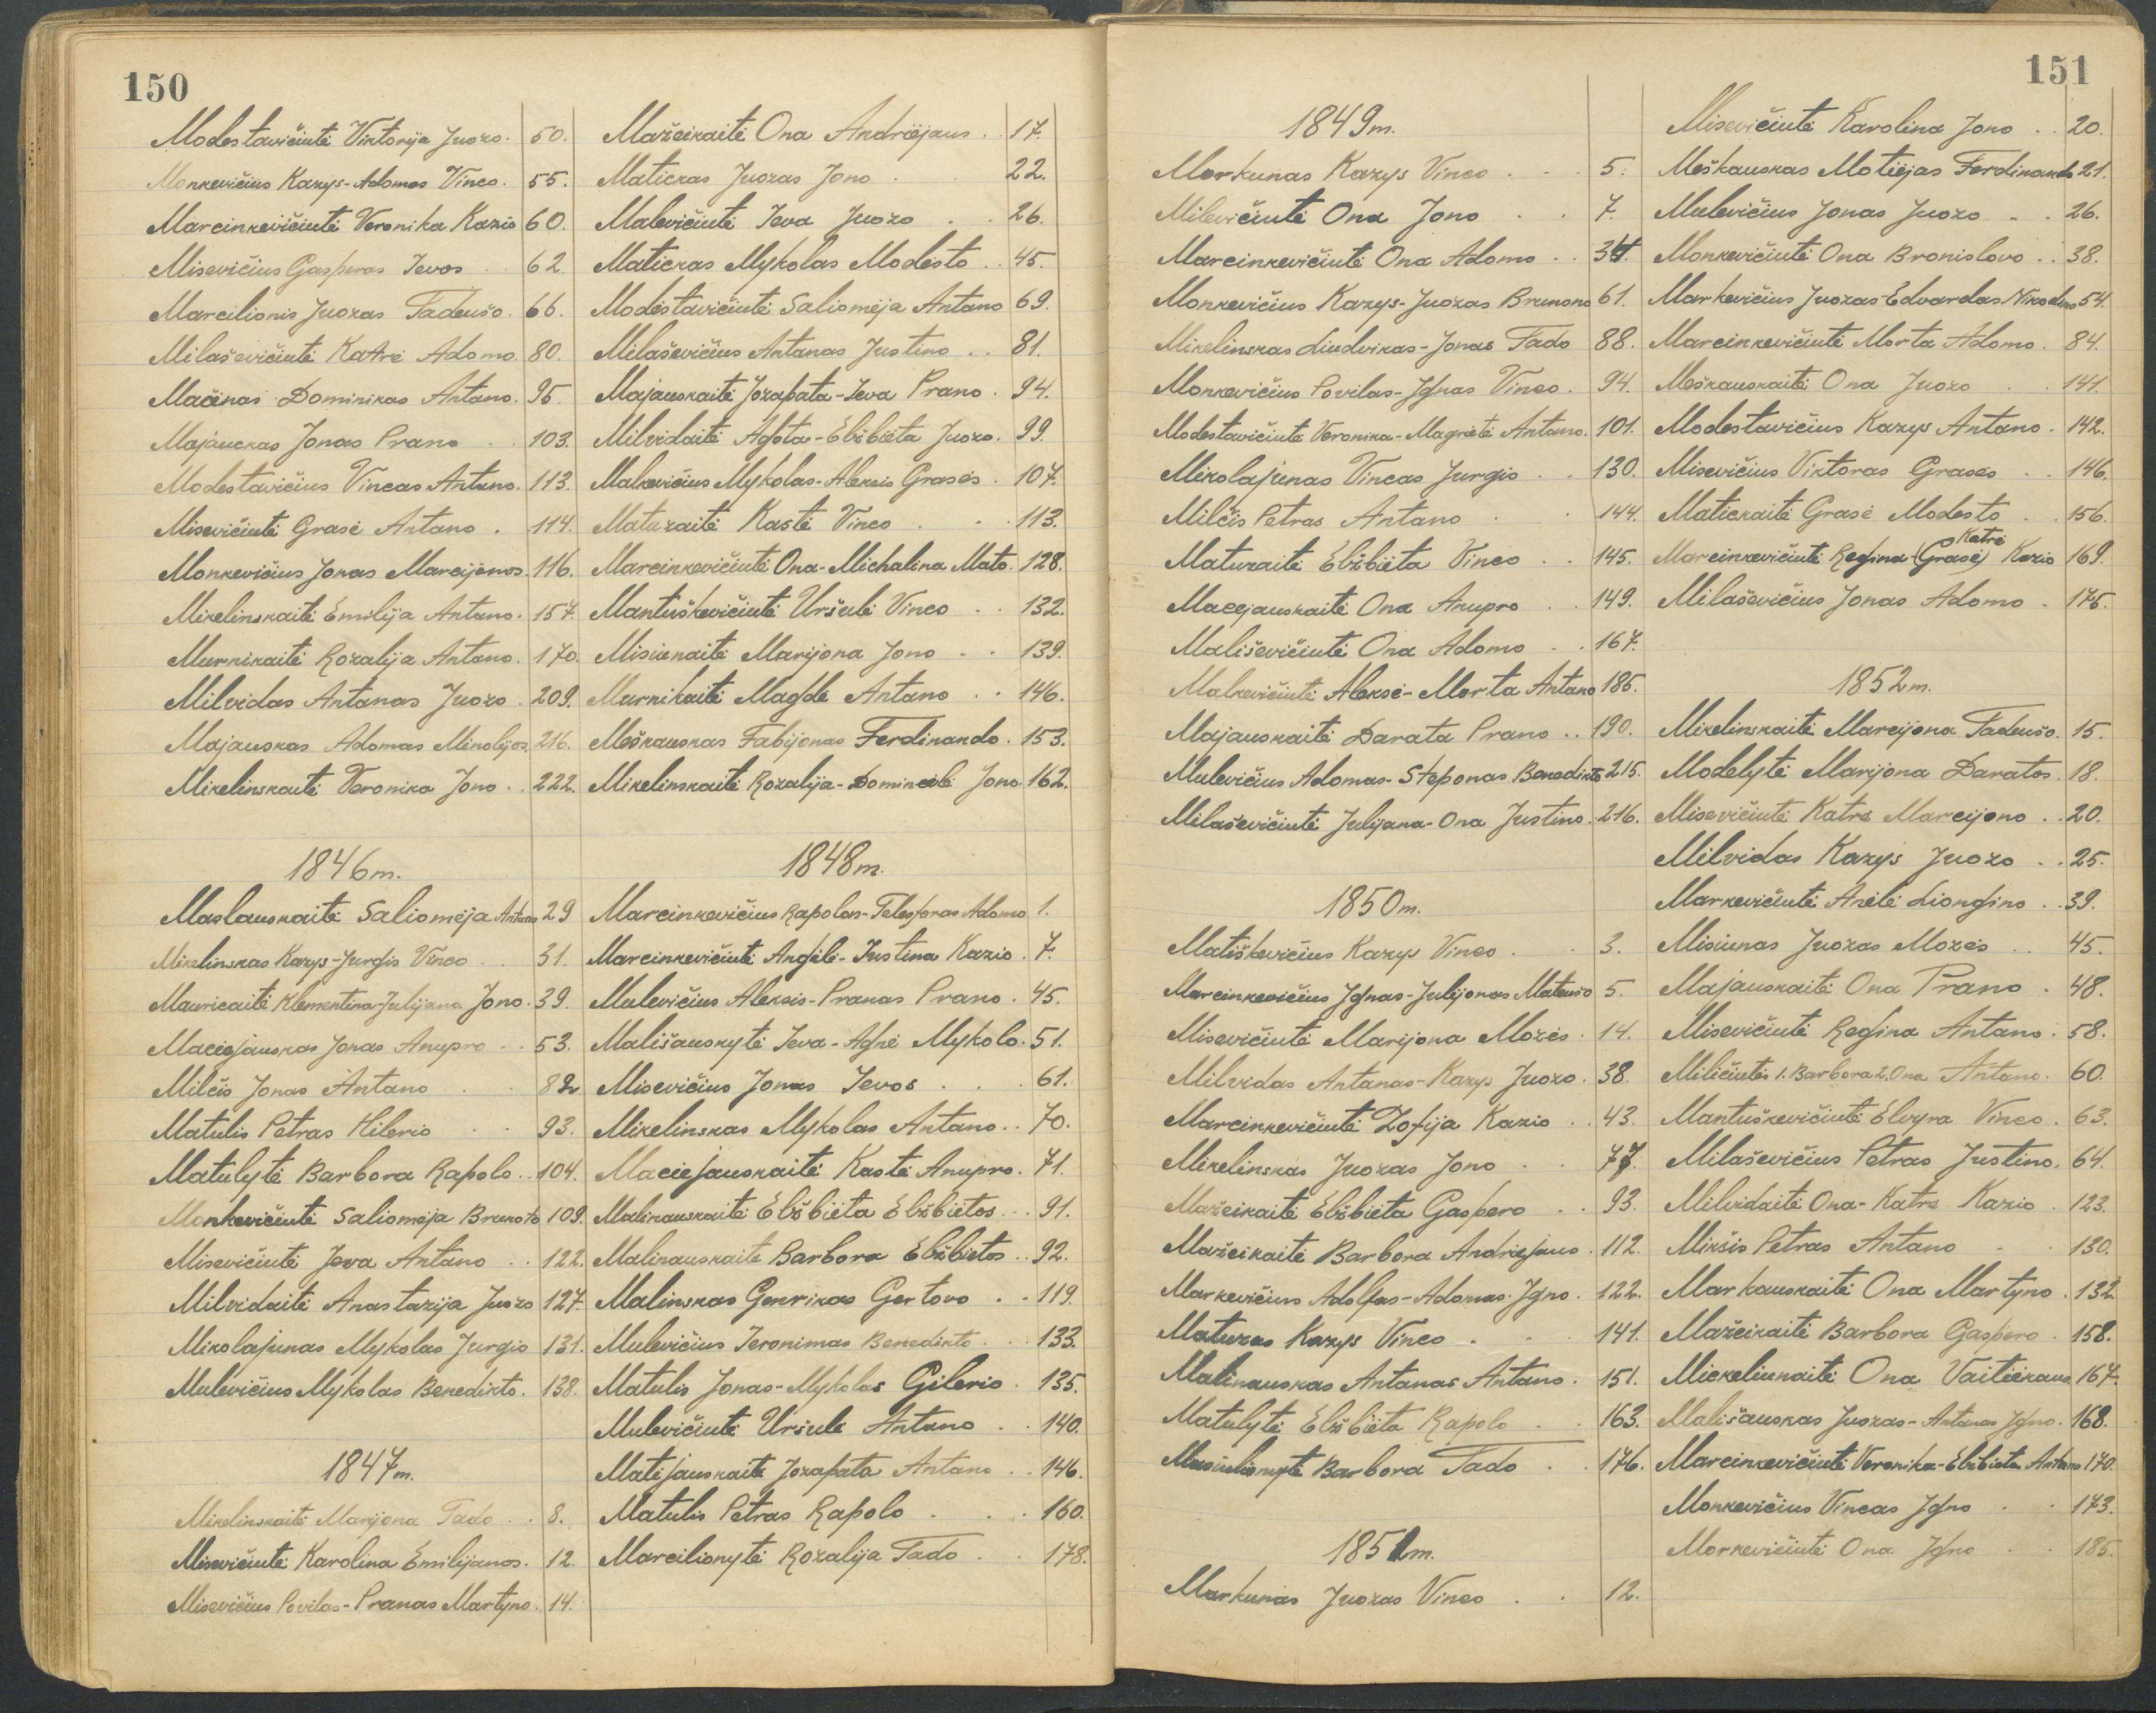 150
Modestavičiutė Viktorija Juozo. 50.
Monkevičius Kazys-Adomas Vinco. 55.
Marcinkevičiutė Veronika Kazio 60.
Misevičius Gasparas Ievos 62.
Marcilionis Juozas Tadeušo. 66.
Milaševičiutė Katrė Adomo 80.
Mačėnas Dominikas Antano. 95.
Majauckas Jonas Prano 103.
Modestavičius Vincas Antano. 113.
Misevičiutė Grasė Antano. 114.
Monkevičius Jonas Marcijonos. 116.
Mikelinskaitė Emilija Antano. 157.
Murnikaitė Rozalija Antano. 170.
Milvidas Antanas Juozo. 209.
Majauskas Adomas Mikolijos. 216.
Mikelinskaitė Veronika Jono. 222.
1846 m.
Maslauskaitė Saliomėja Antano 29
Mikelinskas Kazys-Jurgis Vinco 31.
Mauricaitė Klementina-Julijana Jono. 39.
Maciejauskas Jonas Anupro 53.
Milčis Jonas Antano 82
Matulis Petras Hilerio 93.
Matulytė Barbora Rapolo. 104.
Monkevičiutė Saliomėja Brunoto 109.
Misevičiutė Jeva Antano 122.
Milvidaitė Anastazija Juozo 127.
Mikolajunas Mykolas Jurgio 131.
Mulevičius Mykolas Benedikto. 138.
1847 m.
Mikelinskaitė Marijona Tado 8.
Misevičiutė Karolina Emilijanos. 12.
Misevičius Povilas-Pranas Martyno. 14.
Mažeikaitė Ona Andriėjaus 17.
Matickas Juozas Jono 22.
Malevičiutė Ieva Juozo 26.
Matickas Mykolas Modesto 45.
Modestavičiutė Saliomėja Antano 69.
Milaševičius Antanas Justino 81.
Majauskaitė Jozapata-Ieva Prano. 94.
Milvidaitė Agota-Elžbieta Juozo. 99.
Malkevičius Mykolas-Aleksis Grasės. 107.
Matuzaitė Kastė Vinco 113.
Marcinkevičiutė Ona-Michalina Mato. 128.
Mantuškevičiutė Uršulė Vinco 132.
Misiunaitė Marijona Jono 139.
Murnikaitė Magdė Antano 146.
Meškauskas Fabijonas Ferdinando. 153.
Mikelinskaitė Rozalija-Domincėlė Jono 162.
1848 m.
Marcinkevičius Rapolas-Telesforas Adomo 1.
Marcinkevičiutė Angėlė-Justina Kazio. 7.
Mulevičius Aleksis-Pranas Prano. 45.
Mališauskytė Ieva-Agnė Mykolo. 51.
Misevičius Jonas Ievos 61.
Mikelinskas Mykolas Antano. 70.
Maciejauskaitė Kastė Anupro. 71.
Malinauskaitė Elžbieta Elžbietos. 91.
Malinauskaitė Barbora Elžbietos. 92.
Malinskas Genrikas Gertovo 119.
Mulevičius Jeronimas Benedikto 133.
Matulis Jonas-Mykolas Gilerio. 135.
Mulevičiutė Uršulė Antano 140.
Matijauskaitė Jozapata Antano 146.
Matulis Petras Rapolo 160.
Marcilionytė Rozalija Tado 178.
151
1849 m.
Morkunas Kazys Vinco 5.
Milevičiutė Ona Jono 7.
Marcinkevičiutė Ona Adomo 34.
Monkevičius Kazys-Juozas Brunono 61.
Mikelinskas Liudvikas-Jonas Tado 88.
Monkevičius Povilas-Ignas Vinco. 94.
Modestavičiutė Veronika-Magrietė Antano. 101.
Mikolajunas Vincas Jurgio 130.
Milčis Petras Antano 144.
Matuzaitė Elžbieta Vinco 145.
Macejauskaitė Ona Anupro 149.
Mališevičiutė Ona Adomo 167.
Malkevičiutė Aleksė-Morta Antano 185.
Majauskaitė Darata Prano 190.
Mulevičius Adomas-Steponas Benedikto 215.
Milaševičiutė Julijana-Ona Justino. 216.
1850 m.
Matiškevičius Kazys Vinco. 3.
Marcinkevičius Ignas-Julijonas Mateušo 5.
Misevičiutė Marijona Mozės. 14.
Milvidas Antanas-Kazys Juozo. 38.
Marcinkevičiutė Zofija Kazio 43.
Mikelinskas Juozas Jono 77.
Mažeikaitė Elžbieta Gaspero 93.
Mažeikaitė Barbora Andriejaus. 112.
Markevičius Adolfas-Adomas Igno. 122.
Matuzas Kazys Vinco 141.
Malinauskas Antanas Antano. 151.
Matulytė Elžbieta Rapolo 163.
Barbora Tado 176.
1851 m.
Markunas Juozas Vinco 12.
Misevičiutė Karolina Jono 20.
Meškauskas Motiėjas Ferdinando 21.
Mulevičius Jonas Juozo 26.
Monkevičiutė Ona Bronislovo 38.
Markevičius Juozas-Edvardas Nikodemo 54.
Marcinkevičiutė Morta Adomo. 84.
Meškauskaitė Ona Juozo 141.
Modestavičius Kazys Antano. 142.
Misevičius Viktoras Grasės 146.
Matickaitė Grasė Modesto 156.
Katrė
Marcinkevičiutė Regina (Grasė) Kazio 169.
Milaševičius Jonas Adomo. 175.
1852 m.
Mikelinskaitė Marcijona Tadeušo. 15.
Modelytė Marijona Daratos. 18.
Misevičiutė Katrė Marcijono 20.
Milvidas Kazys Juozo 25.
Markevičiutė Anėlė Liongino 39.
Misiunas Juozas Mozės 45.
Majauskaitė Ona Prano. 48.
Misevičiutė Regina Antano. 58.
Miličiutės 1. Barbora 2. Ona Antano. 60.
Mantuškevičiutė Elvyra Vinco. 63.
Milaševičius Petras Justino. 64.
Milvidaitė Ona-Katrė Kazio. 123.
Mikšis Petras Antano 130.
Markauskaitė Ona Martyno. 132
Mažeikaitė Barbora Gaspero. 158.
Mickeliunaitė Ona Vaitiėkaus 167.
Mališauskas Juozas-Antanas Igno. 168.
Marcinkevičiutė Veronika-Elžbieta Antano 170.
Monkevičius Vincas Igno 173.
Morkevičiutė Ona Igno 185.